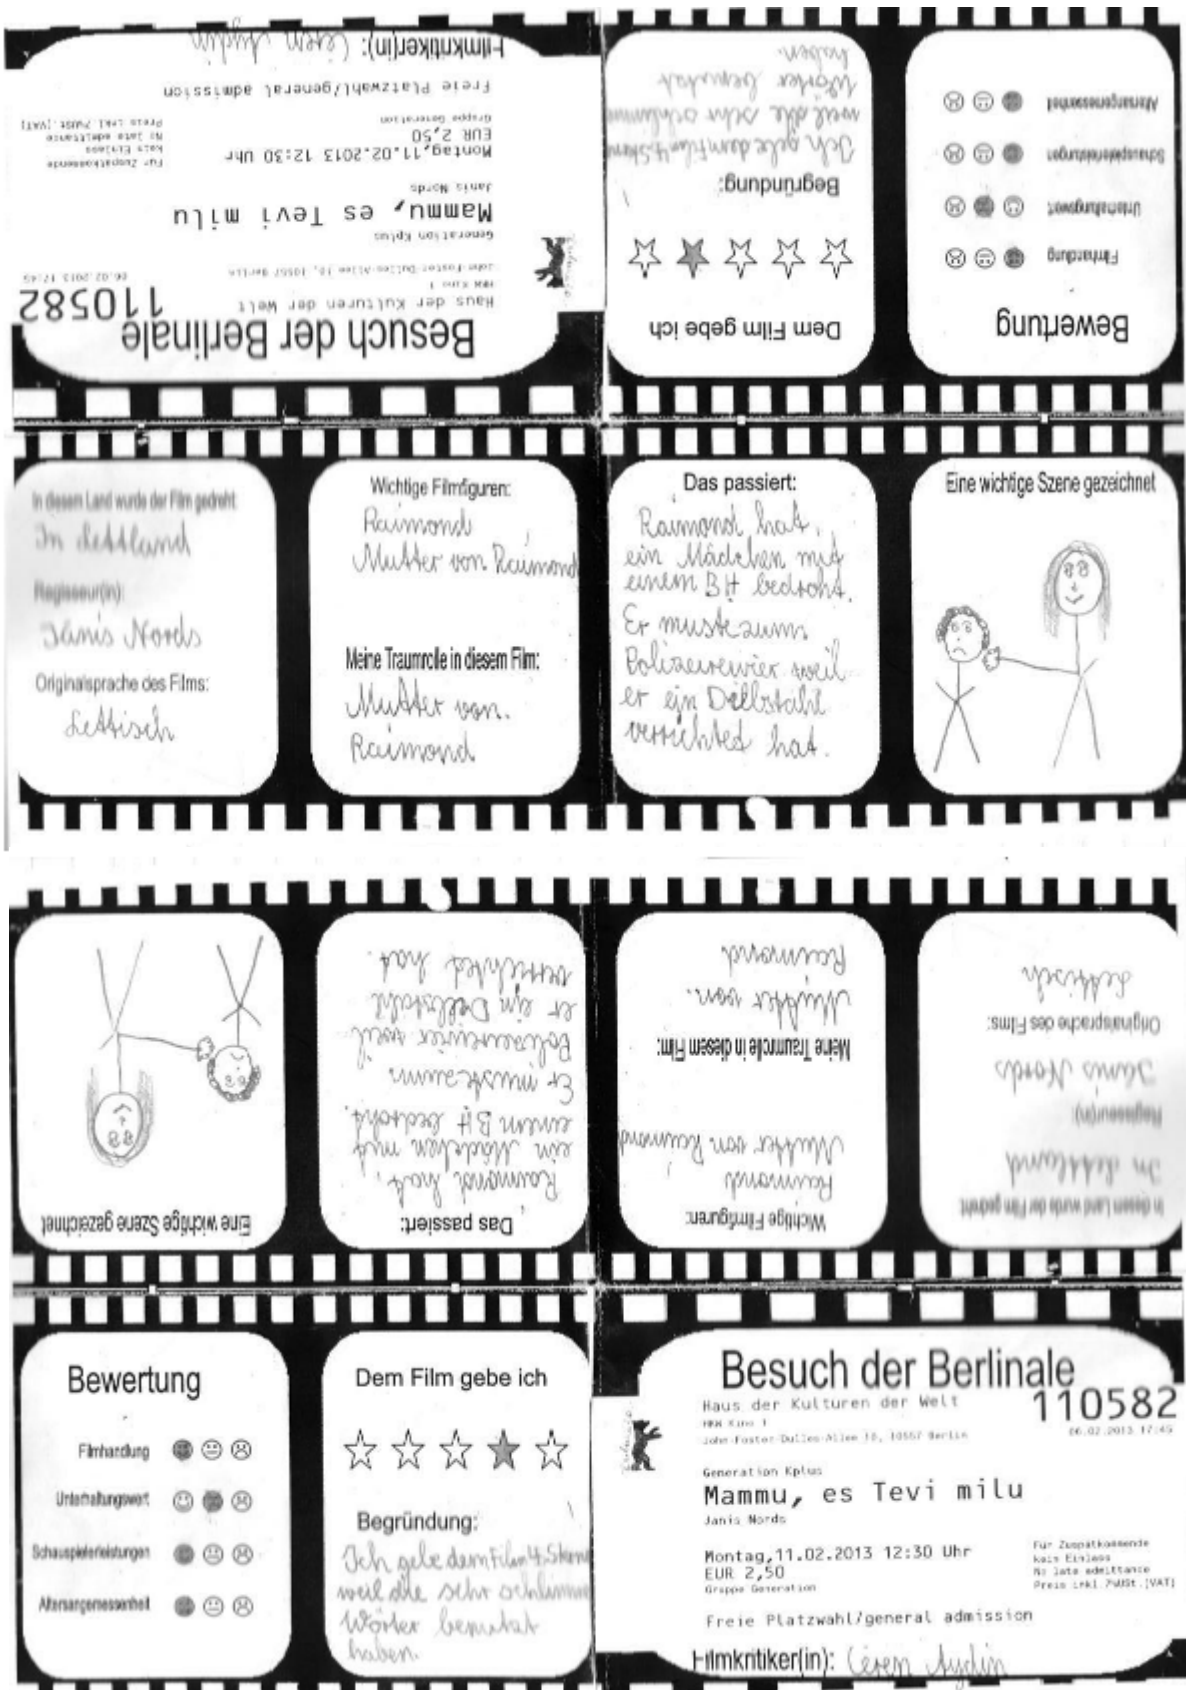 Besuch der Berlinale
Haus der Kulturen der Welt
HKW Kino 1
John-Foster-Dulles-Allee 10, 10557 Berlin
110582
06.02.2013 17:45
Generation Kplus
Mammu, es Tevi milu
Janis Nords
Montag,11.02.2013 12:30 Uhr
EUR 2,50
Gruppe Generation
Für Zuspätkommende
kein Einlass
No late admittance
Preis inkl.7%USt.[VAT]
Freie Platzwahl/general admission
Filmkritiker(in): Ceren Aydin
Dem Film gebe ich
Begründung:
Ich gebe dem Film 4 Sterne
weil die sehr schlimme
Wörter benutzt
haben.
Bewertung
Filmhandlung
Unterhaltungswert
Schauspielerleistungen
Altersangemessenheit
In diesem Land wurde der Film gedreht:
In Lettland
Regisseur(in):
Janis Nords
Originalsprache des Films:
Lettisch
Wichtige Filmfiguren:
Raimond
Mutter von Raimond
Meine Traumrolle in diesem Film:
Mutter von.
Raimond
Das passiert:
Raimond hat,
ein Mädchen mit
einem BH bedroht.
Er muste zum
Polizeirevier weil
er ein Diebstahl
verrichted hat.
Eine wichtige Szene gezeichnet
Eine wichtige Szene gezeichnet
Das passiert:
Raimond hat,
ein Mädchen mit
einem BH bedroht.
Er muste zum
Polizeirevier weil
er ein Diebstahl
verrichted hat.
Wichtige Filmfiguren:
Raimond
Mutter von Raimond
Meine Traumrolle in diesem Film:
Mutter von.
Raimond
In diesem Land wurde der Film gedreht:
In Lettland
Regisseur(in):
Janis Nords
Originalsprache des Films:
Lettisch
Bewertung
Filmhandlung
Unterhaltungswert
Schauspielerleistungen
Altersangemessenheit
Dem Film gebe ich
Begründung:
Ich gebe dem Film 4 Sterne
weil die sehr schlimme
Wörter benutzt
haben.
Besuch der Berlinale
Haus der Kulturen der Welt
HKW Kino 1
John-Foster-Dulles-Allee 10, 10557 Berlin
110582
06.02.2013 17:45
Generation Kplus
Mammu, es Tevi milu
Janis Nords
Montag,11.02.2013 12:30 Uhr
EUR 2,50
Gruppe Generation
Für Zuspätkommende
kein Einlass
No late admittance
Preis inkl.7%USt.[VAT]
Freie Platzwahl/general admission
Filmkritiker(in): Ceren Aydin